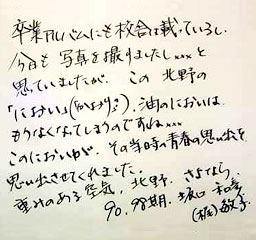 卒業アルバムにも校舎は載っているし
今日も写真を撮りましたし…と
思っていましたが、この北野の
「におい」油のにおいは
もうなくなってしまうのですね…
このにおいが、その当時の青春の思い出を
思い出させてくれました。
重みのある空気、北野、さよなら。
90.98期. 堀口 和
敏子